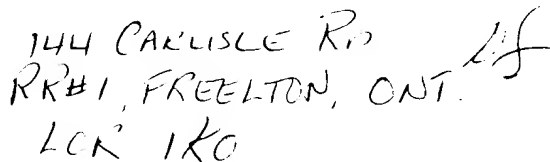 144 CARLISLE RD
RR#1, FREELTON, ONT.
LOR 1K0